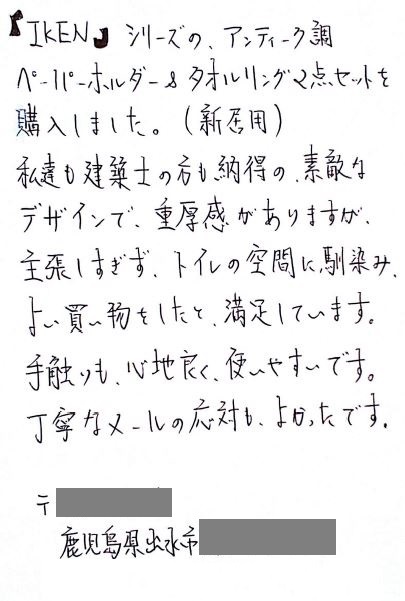 『IKEN』シリーズの、アンティーク調
ペーパーホルダー&タオルリング2点セットを
購入しました。(新居用)
私達も建築士の方も納得の、素敵な
デザインで、重厚感がありますが、
主張しすぎず、トイレの空間に馴染み、
よい買い物をしたと、満足しています。
手触りも、心地良く、使いやすいです。
丁寧なメールの応対も、よかったです。
〒
鹿児島県出水市